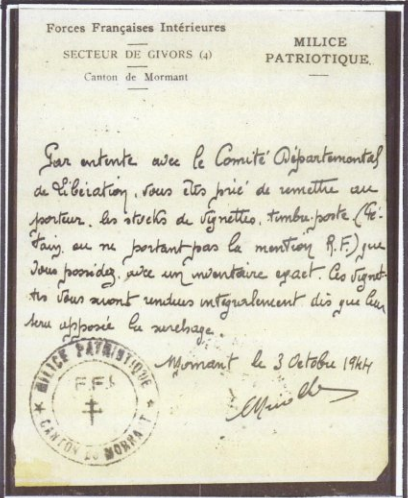 Forces Françaises Intérieures
SECTEUR DE GIVORS (4)
Canton de Mormant
MILICE
PATRIOTIQUE
Par entente avec le Comité Départemental
de Libération, vous êtes prié de remettre au
porteur, les stocks de vignettes, timbre-poste (Pé-
tain, ou ne portant pas la mention R.F.) que
vous possédez, avec un inventaire exact. Ces vignet-
tes vous seront rendues intégralement dès que leur
sera apposée la surcharge.
Mornant le 3 Octobre 1944
★ MILICE PATRIOTIQUE ★
F.F.I.
CANTON DE MORNANT